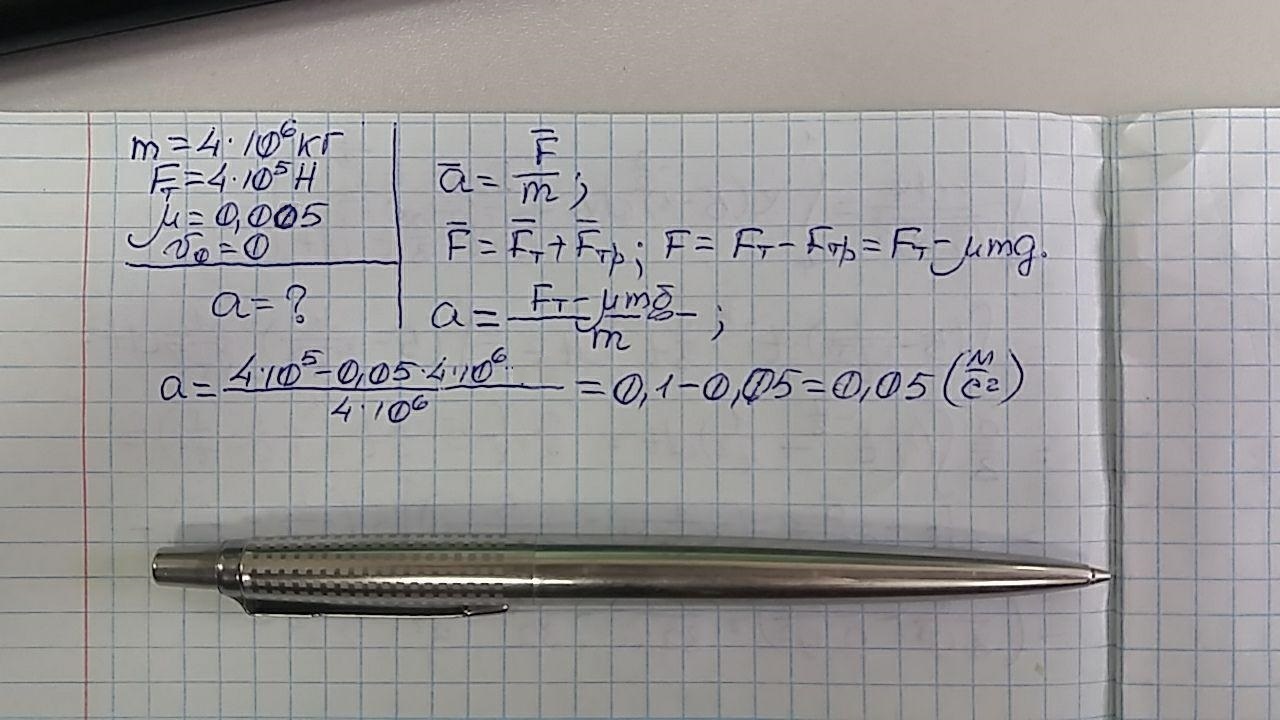 m = 4·10⁶ кг
Fт = 4·10⁵ Н
μ = 0,005
v₀ = 0
a = ?
a̅ = F̅/m ;
F̅ = F̅т + F̅тр ; F = Fт - Fтр = Fт - μmg.
a = (Fт - μmg)/m ;
a = (4·10⁵ - 0,05·4·10⁶)/(4·10⁶) = 0,1 - 0,05 = 0,05 (м/с²)